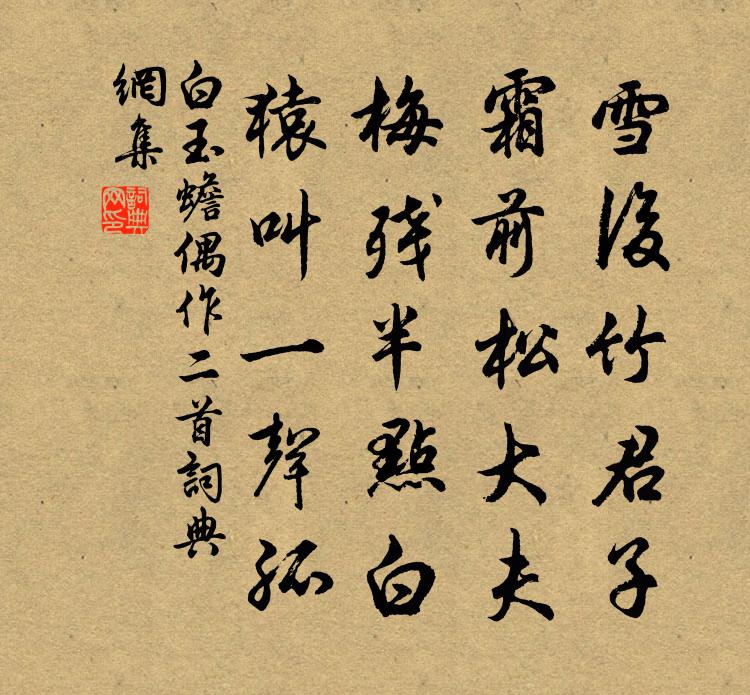 雪後竹君子
霜前松大夫
梅残半點白
猿叫一聲孤
白玉蟾偶作二首詞典
網集
詞典
网印